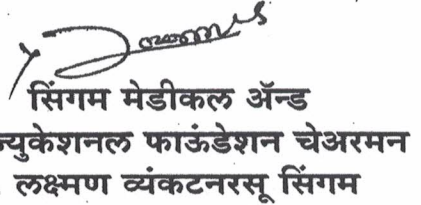 सिंगम मेडीकल ॲन्ड
ज्युकेशनल फाऊंडेशन चेअरमन
लक्ष्मण व्यंकटनरसू सिंगम